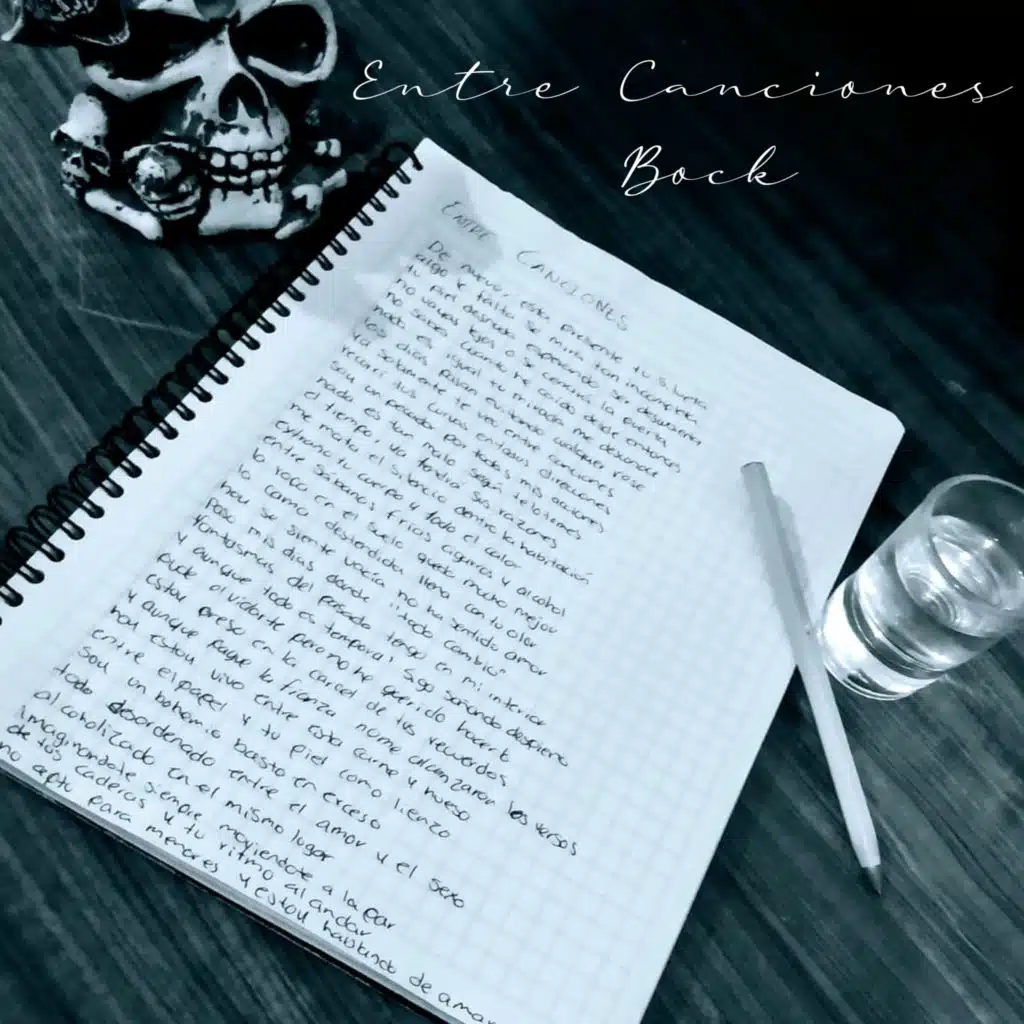 Entre Canciones
Bock
ENTRE CANCIONES
De nuevo, esta presente tu silueta
algo le falta se mira tan incompleta
tu piel desnuda esperando ser desquisiames
no vayas lejos o se cerrará la puerta
no sabes Cuanto he caido desde entonces
nada es igual tu mirada me desconoce
los días pasan evitando cualquier rose
ya solamente te veo entre canciones
recorrí tus curvas en todas direcciones
soy un pecador por todas mis acciones
nada es tan malo según te lo tomes
el tiempo, ya tendrá sus razones
me mata el silencio dentro la habitación
extraño tu cuerpo y todo el calor
entre sabanas frias cigarros y alcohol
la ropa en el suelo queda mucho mejor
la cama destendida, llena con tu olor
hoy se siente vacia no ha sentido amor
Paso mis días donde "nada cambio"
fantasmas del pasado tengo en mi interior
y aunque todo es temporal Sigo soñando despierto
pude olvidarte pero no he querido hacerlo
estoy preso en la carcel de tus recuerdos
y aunque pague la fianza no me alcanzaron los versos
hoy estoy vivo entre esta carne y hueso
entre el papel y tu piel como lienzo
soy un bohemio basto en exceso
todo desordenado entre el amor y el sexo
alcoholizado en el mismo lugar
imaginandote siempre moviendote a la par
de tus caderas y tu ritmo al andar
no apto para menores y estoy hablando de amar